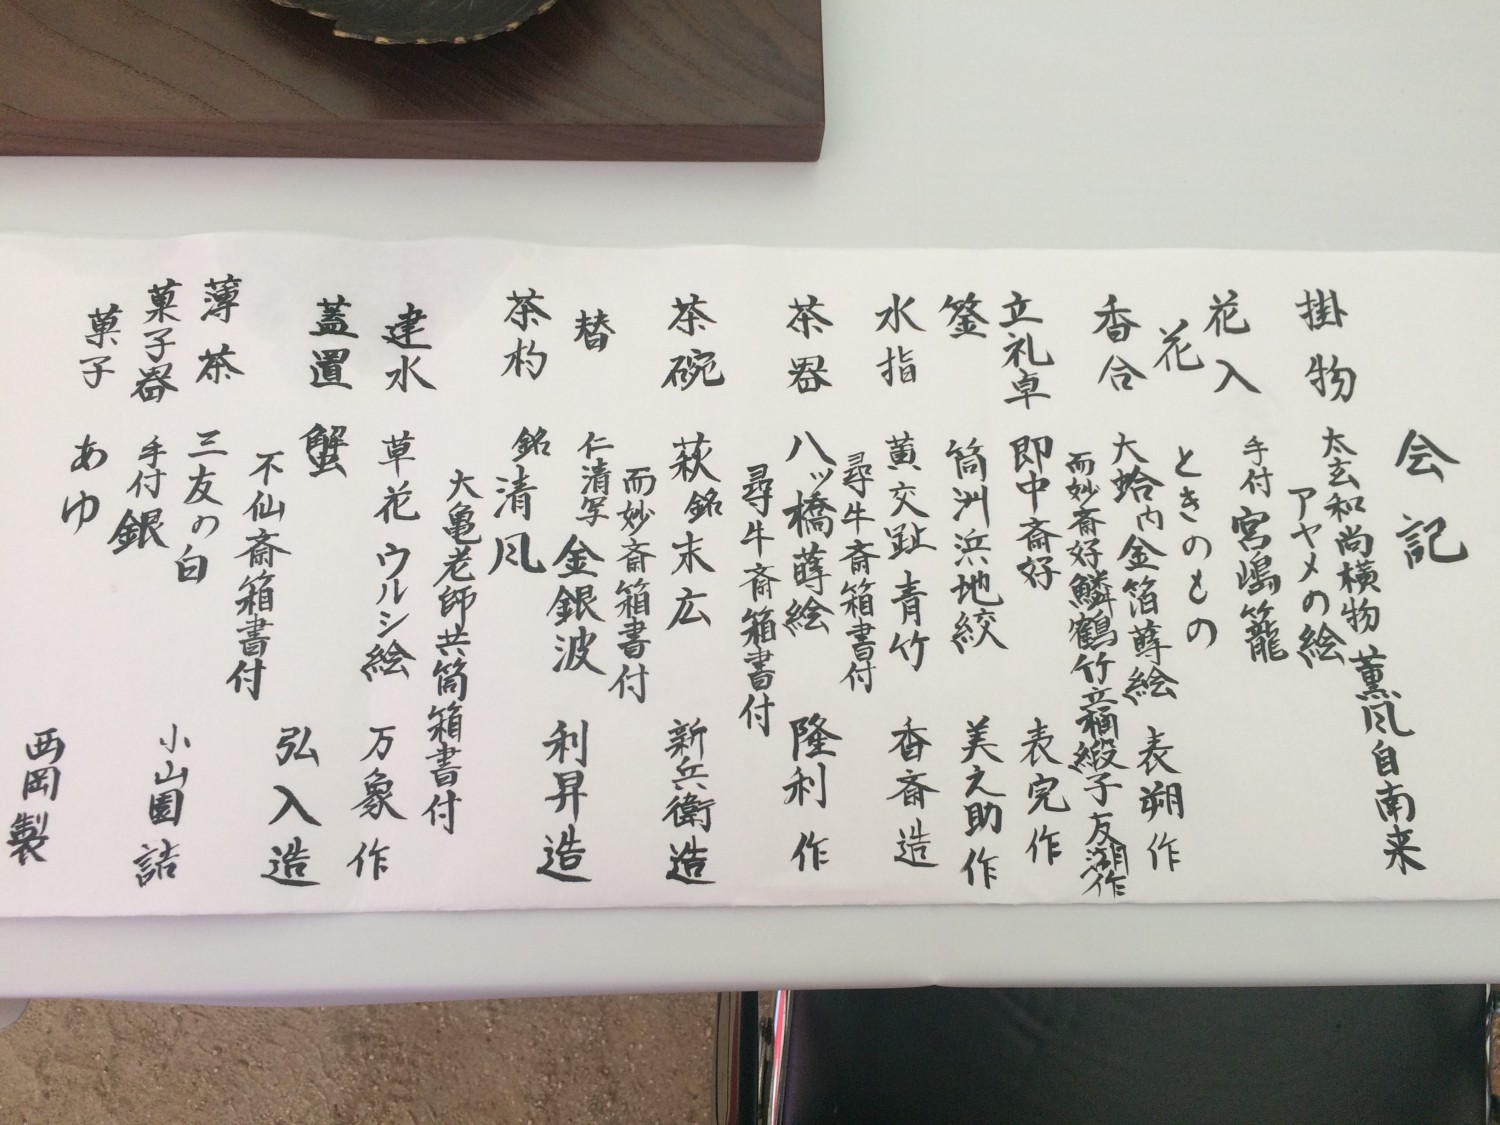 会記
掛物 太玄和尚横物 薫風自南来
アヤメの絵
花入 手付 宮嶋籠
花 ときのもの
香合 大蛤内金箔蒔絵 表朔作
而妙斎好鱗鶴竹立涌緞子友湖作
立礼卓 即中斎好 表完作
釜 筒洲浜地絞 美之助作
水指 黄交趾青竹 香斎造
尋牛斎箱書付
茶器 八ッ橋蒔絵 隆利作
尋牛斎箱書付
茶碗 萩 銘 末広 新兵衛造
而妙斎箱書付
替 仁清写 金銀波 利昇造
茶杓 銘 清風
大亀老師共筒箱書付
建水 草花ウルシ絵 万象作
蓋置 蟹 弘入造
不仙斎箱書付
薄茶 三友の白 小山園詰
菓子器 手付 銀
菓子 あゆ 西岡製